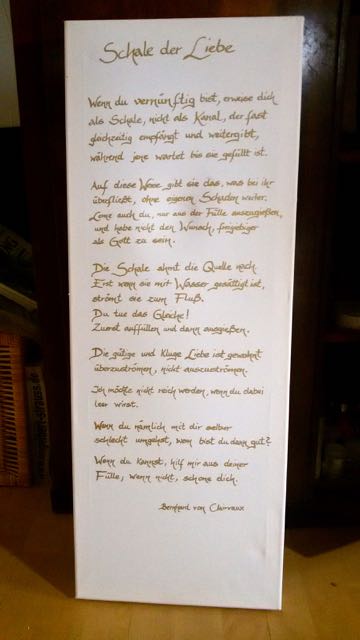 Schale der Liebe
Wenn du vernünftig bist, erweise dich
als Schale, nicht als Kanal, der fast
gleichzeitig empfängt und weitergibt,
während jene wartet bis sie gefüllt ist.
Auf diese Weise gibt sie das, was bei ihr
überfließt, ohne eigenen Schaden weiter.
Lerne auch du, nur aus der Fülle auszugießen,
und habe nicht den Wunsch, freigiebiger
als Gott zu sein.
Die Schale ahmt die Quelle nach.
Erst wenn sie mit Wasser gesättigt ist,
strömt sie zum Fluß.
Du tue das Gleiche!
Zuerst auffüllen und dann ausgießen.
Die gütige und kluge Liebe ist gewohnt
überzuströmen, nicht auszuströmen.
Ich möchte nicht reich werden, wenn du dabei
leer wirst.
Wenn du nämlich mit dir selber
schlecht umgehst, wem bist du dann gut?
Wenn du kannst, hilf mir aus deiner
Fülle, wenn nicht, schone dich.
Bernhard von Clairvaux